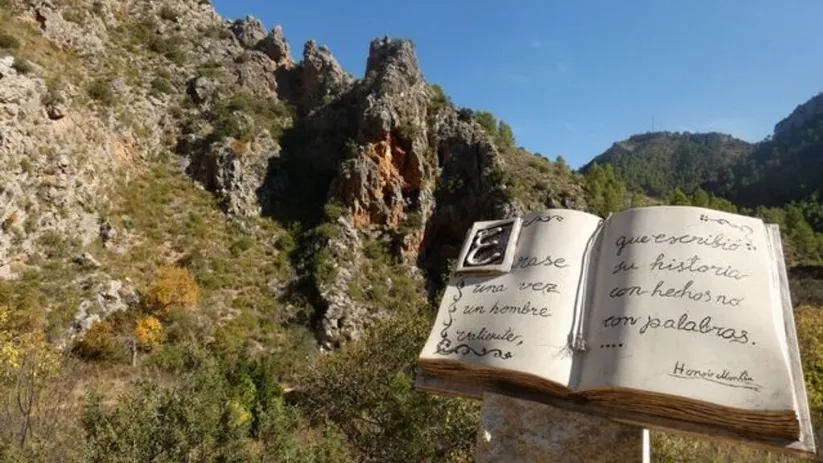 Erase
una vez
un hombre
valiente,
que escribió
su historia
con hechos no
con palabras.
....